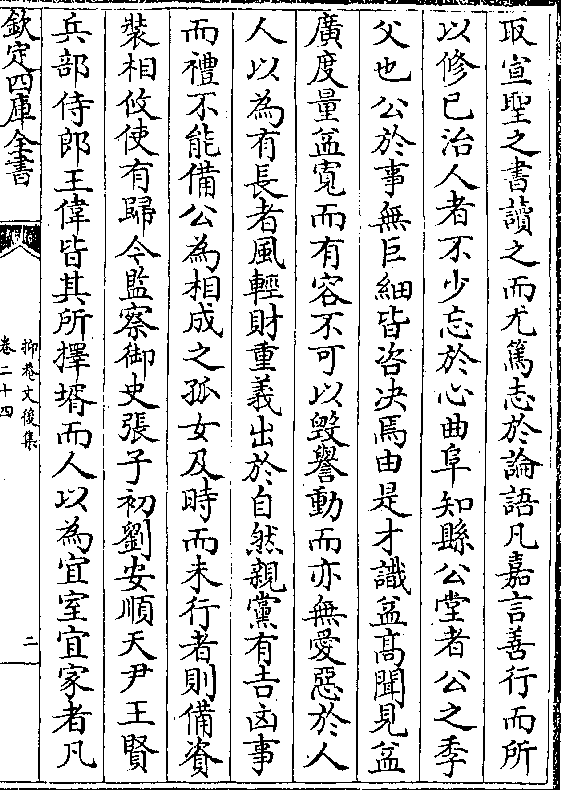 取宣聖之書讀之而尤篤志於論語凡嘉言善行而所
以修已治人者不少忘於心曲阜知縣公堂者公之季
父也公於事無巨細皆咨决焉由是才識益髙聞見益
廣度量益寛而有容不可以毀譽動而亦無愛惡於人
人以為有長者風輕財重義出於自然親黨有吉凶事
而禮不能備公為相成之孤女及時而未行者則備資
裝相攸使有歸令監察御史張子初劉安順天尹王賢
兵部侍郎王偉皆其所擇壻而人以為宜室宜家者凡
欽定四庫全書
抑菴文後集
卷二十四
二